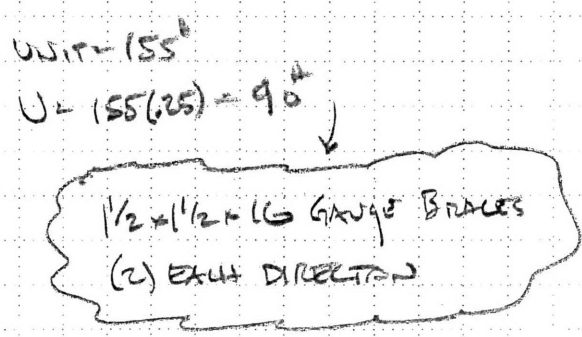 UNIT = 155#
U = 155(.25) = 90#
1 1/2 x 1 1/2 x 16 GAUGE BRACES
(2) EACH DIRECTION